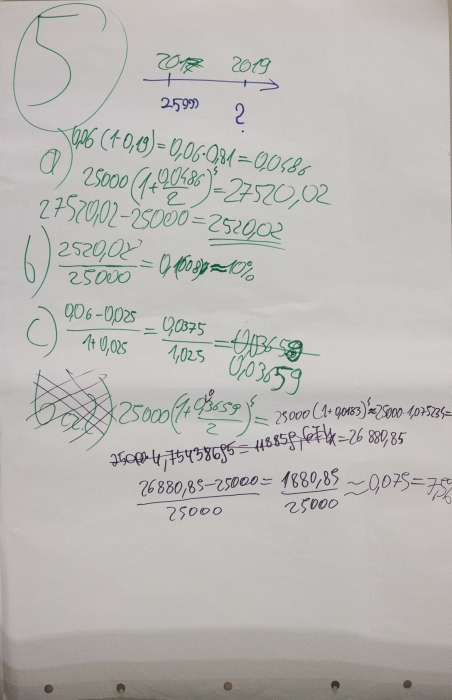 5
2017 2019
25000 ?
a) 0,06 (1-0,19) = 0,06·0,81 = 0,0486
25000 (1+ 0,0486/2)^4 = 27520,02
27520,02-25000 = 2520,02
b) 2520,02/25000 = 0,1008 ≈ 10%
c) 0,06-0,025/1+0,025 = 0,0375/1,025 = 0,03659
0,03659
25000 (1+ 0,03659/2)^4 = 25000 (1+0,0183)^4 ≈ 25000·1,075234 =
= 26 880,85
26880,85-25000/25000 = 1880,85/25000 ≈ 0,075 = 7,5%